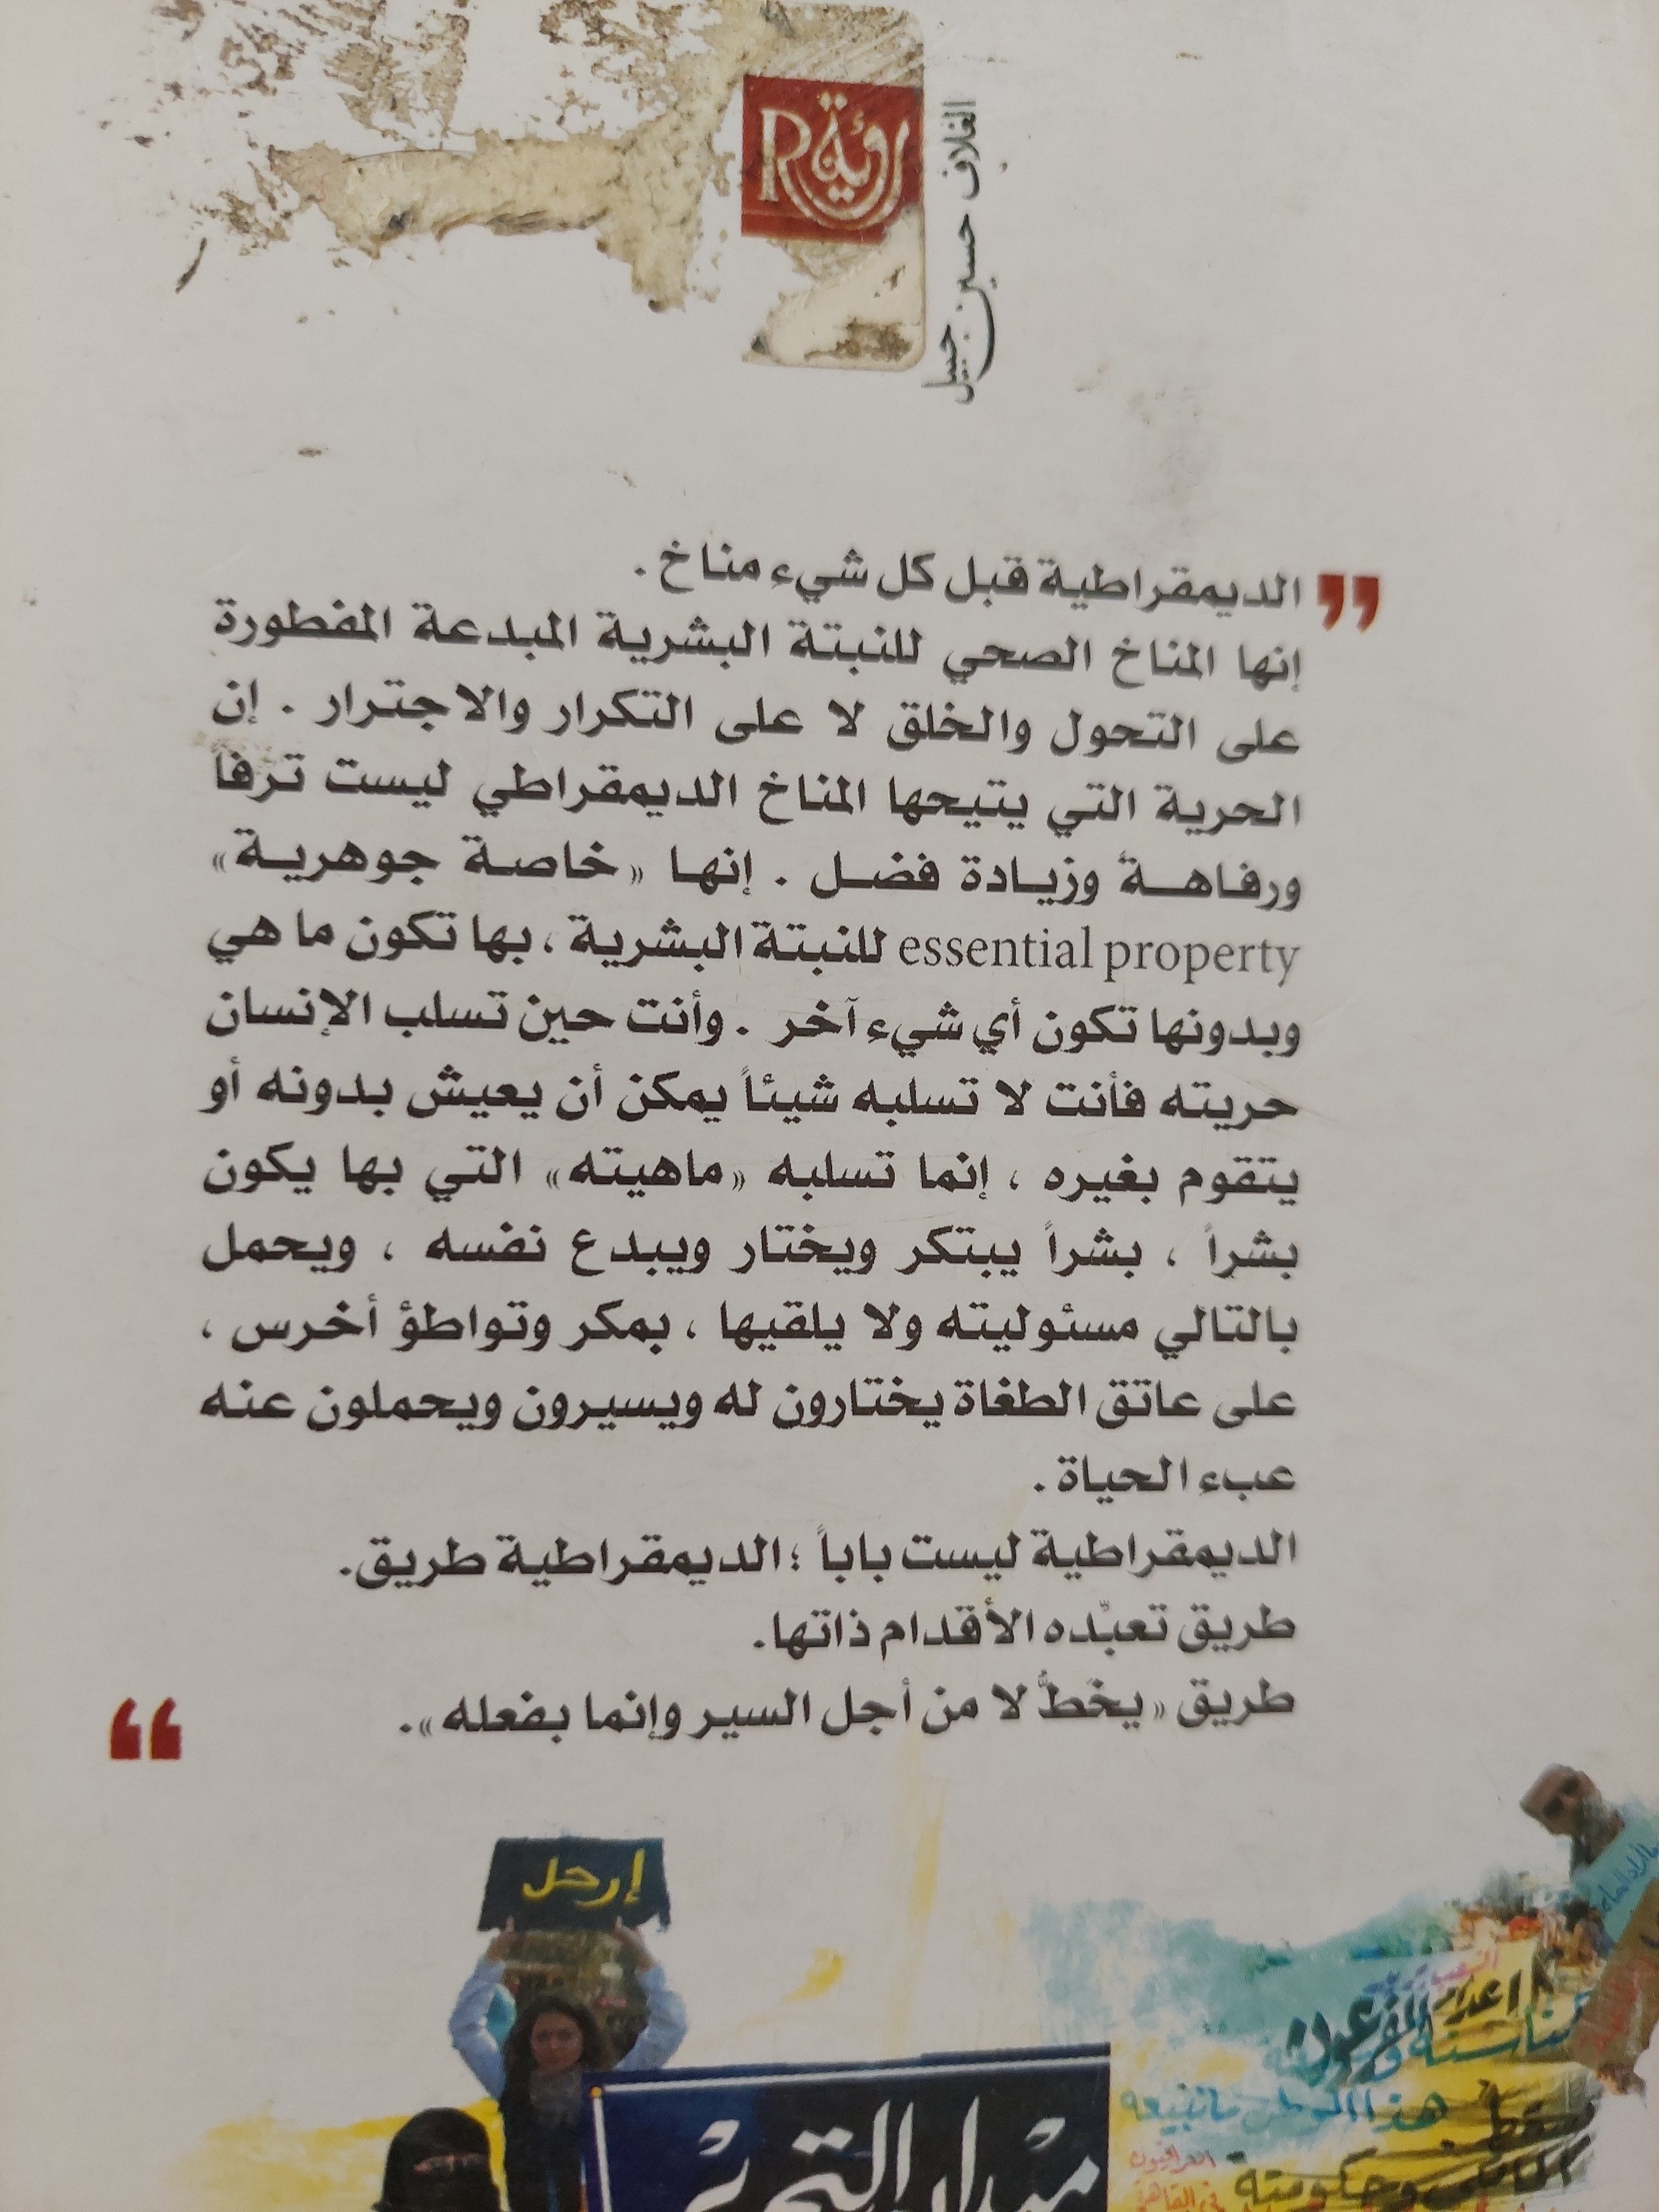 رؤية
R
الغلاف حسين جبيل
الديمقراطية قبل كل شيء مناخ .
إنها المناخ الصحي للنبتة البشرية المبدعة المفطورة
على التحول والخلق لا على التكرار والاجترار . إن
الحرية التي يتيحها المناخ الديمقراطي ليست ترفاً
ورفاهـةً وزيـادة فضـل . إنهـا «خاصـة جوهريـة»
essential property للنبتة البشرية ، بها تكون ما هي
وبدونها تكون أي شيء آخر . وأنت حين تسلب الإنسان
حريته فأنت لا تسلبه شيئاً يمكن أن يعيش بدونه أو
يتقوم بغيره ، إنما تسلبه «ماهيته» التي بها يكون
بشراً ، بشراً يبتكر ويختار ويبدع نفسه ، ويحمل
بالتالي مسئوليته ولا يلقيها ، بمكر وتواطؤ أخرس ،
على عاتق الطغاة يختارون له ويسيرون ويحملون عنه
عبء الحياة .
الديمقراطية ليست باباً ؛ الديمقراطية طريق.
طريق تعبّده الأقدام ذاتها.
طريق «يخطُّ لا من أجل السير وإنما بفعله».
إرحل
ميدان التحرير
هذا الوطن مانبيعه